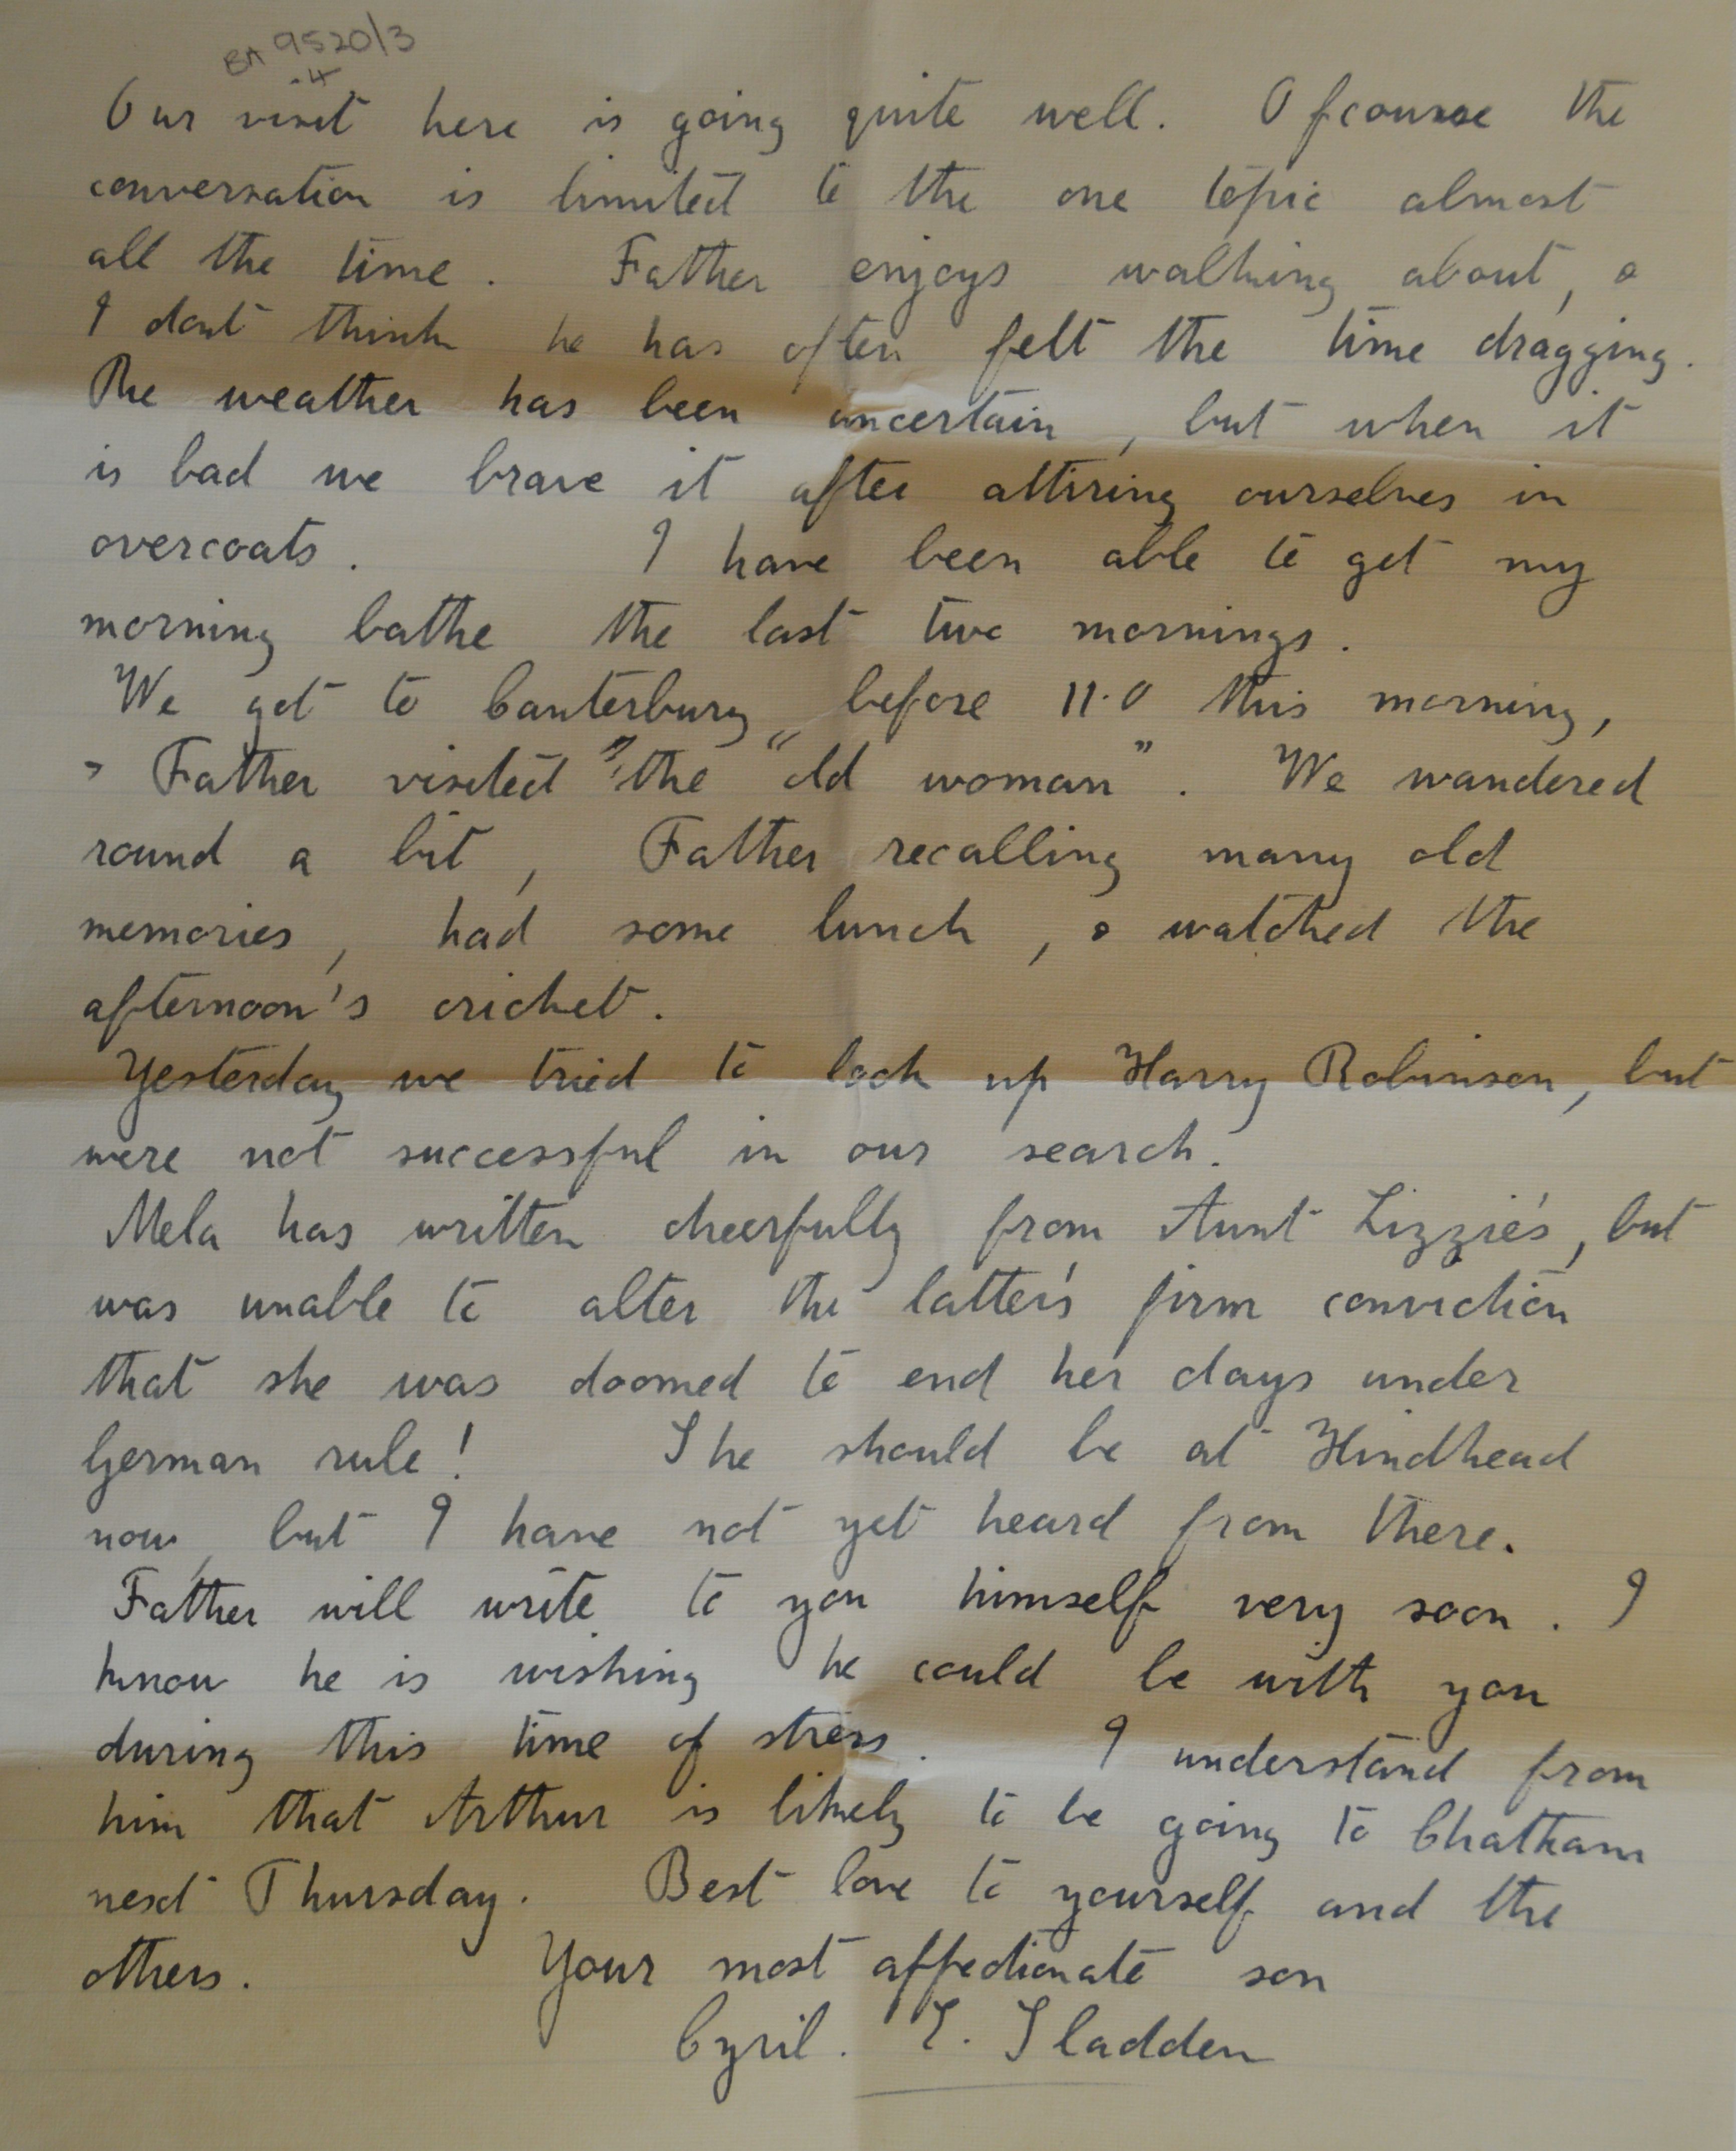 BA 9520/3
.4
Our visit here is going quite well. Ofcourse the
conversation is limited to the one topic almost
all the time. Father enjoys walking about, &
I dont think he has often felt the time dragging.
The weather has been uncertain, but when it
is bad we brave it after attiring ourselves in
overcoats. I have been able to get my
morning bathe the last two mornings.
We got to Canterbury before 11.0 this morning,
& Father visited the "old woman". We wandered
round a bit, Father recalling many old
memories, had some lunch, & watched the
afternoon's cricket.
Yesterday we tried to look up Harry Robinson, but
were not successful in our search.
Mela has written cheerfully from Aunt Lizzie's, but
was unable to alter the latter's firm conviction
that she was doomed to end her days under
German rule! She should be at Hindhead
now, but I have not yet heard from there.
Father will write to you himself very soon. I
know he is wishing he could be with you
during this time of stress. I understand from
him that Arthur is likely to be going to Chatham
next Thursday. Best love to yourself and the
others. Your most affectionate son
Cyril. E. Sladden